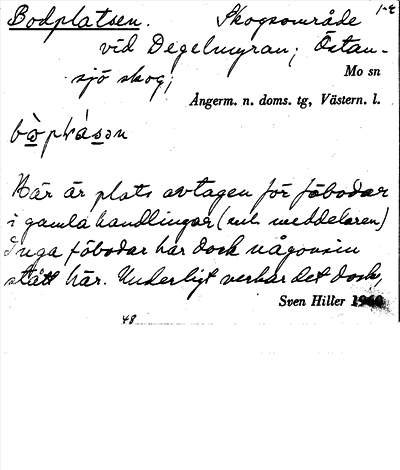 Bodplatsen. Skogsområde
vid Degelmyran; Östan-
sjö skog;
Mo sn
Ångerm. n. doms. tg, Västern. l.
Här är plats avtagen för fäbodar
i gamla handlingar (enl. meddelaren)
Inga fäbodar har dock någonsin
stått här. Underligt verkar det dock,
Sven Hiller 1960
48